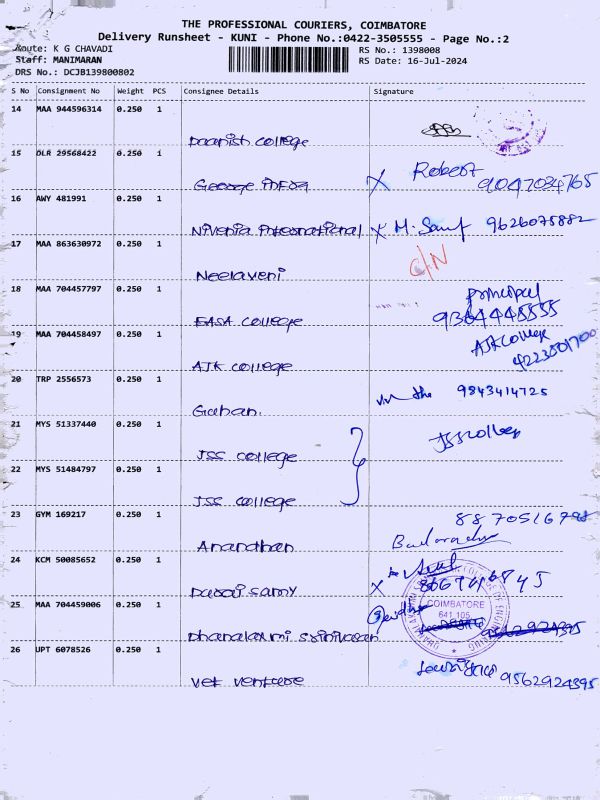 THE PROFESSIONAL COURIERS, COIMBATORE
Delivery Runsheet - KUNI - Phone No.:0422-3505555 - Page No.:2
Route: K G CHAVADI
RS No.: 1398008
Staff: MANIMARAN
RS Date: 16-Jul-2024
DRS No.: DCJB139800802
S No Consignment No Weight PCS Consignee Details Signature
14 MAA 944596314 0.250 1
Daanish college
15 DLR 29568422 0.250 1
George infra X Robert 9047034765
16 AWY 481991 0.250 1
Nivenia international X M. 9626075882
17 MAA 863630972 0.250 1
Neelaveni C/N
18 MAA 704457797 0.250 1
EASA college principal 9364448555
19 MAA 704458497 0.250 1
AJK college AJK College
20 TRP 2556573 0.250 1
Guhan. 9843414725
21 MYS 51337440 0.250 1
JSS college JSS College
22 MYS 51484797 0.250 1
JSS college
23 GYM 169217 0.250 1
Anandhan
24 KCM 50085652 0.250 1
Durai samy X
25 MAA 704459006 0.250 1
Dhanalaxmi srinivasan
COIMBATORE
641 105
26 UPT 6078526 0.250 1
vet venture 9562924395